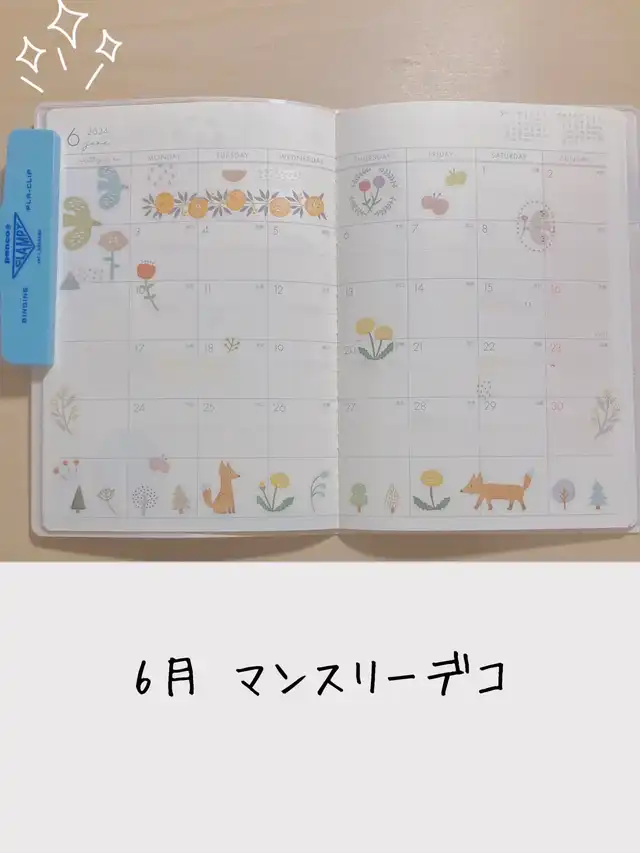 6 2024
june
MONDAY TUESDAY WEDNESDAY THURSDAY FRIDAY SATURDAY SUNDAY
1 2
3 4 5 6 7 8
10 11 12 13 14 15 16
17 18 19 20 21 22 23
24 25 26 27 28 29 30
penco
CLAMPY
PLA-CLIP
BINDING
6月 マンスリーデコ